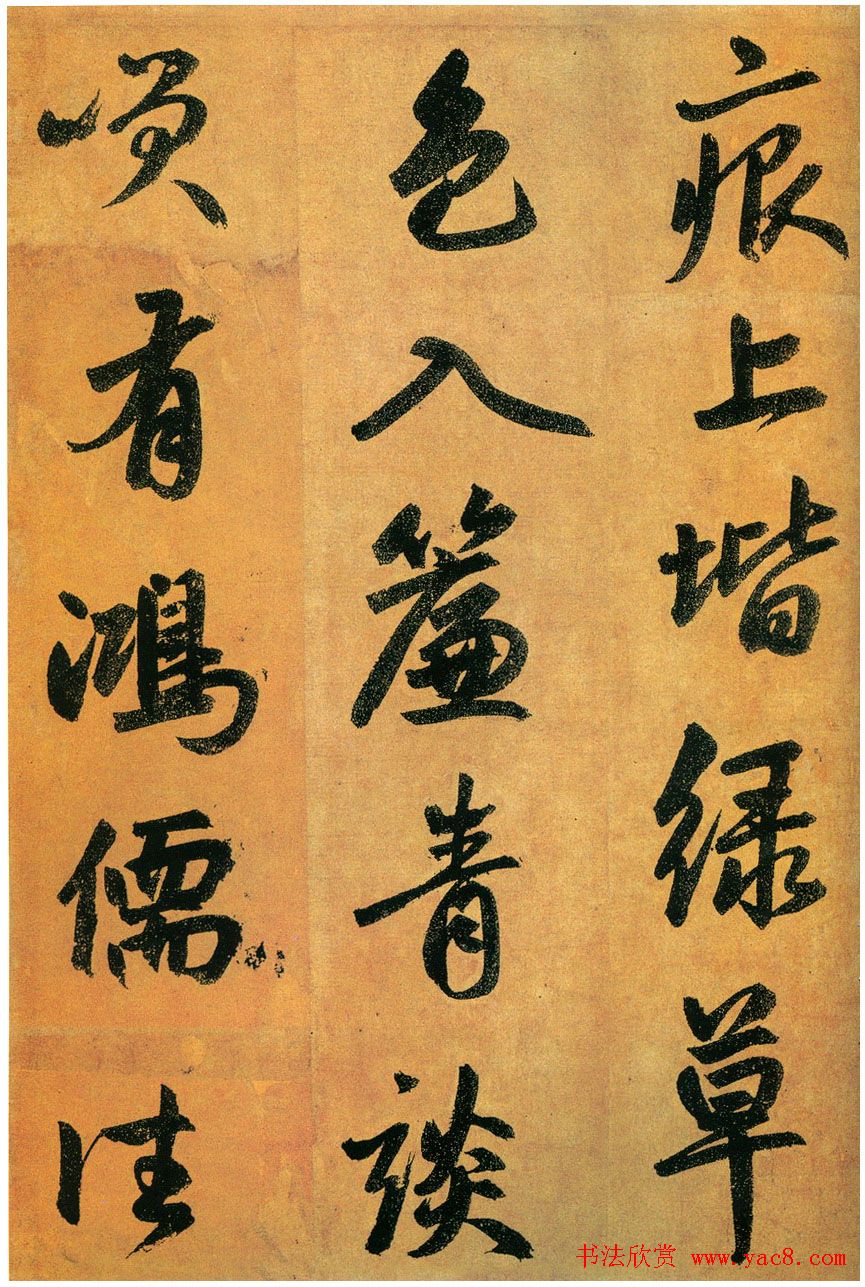 痕上堦緑草
色入簾青談
咲有鴻儒往
书法欣赏 www.yac8.com